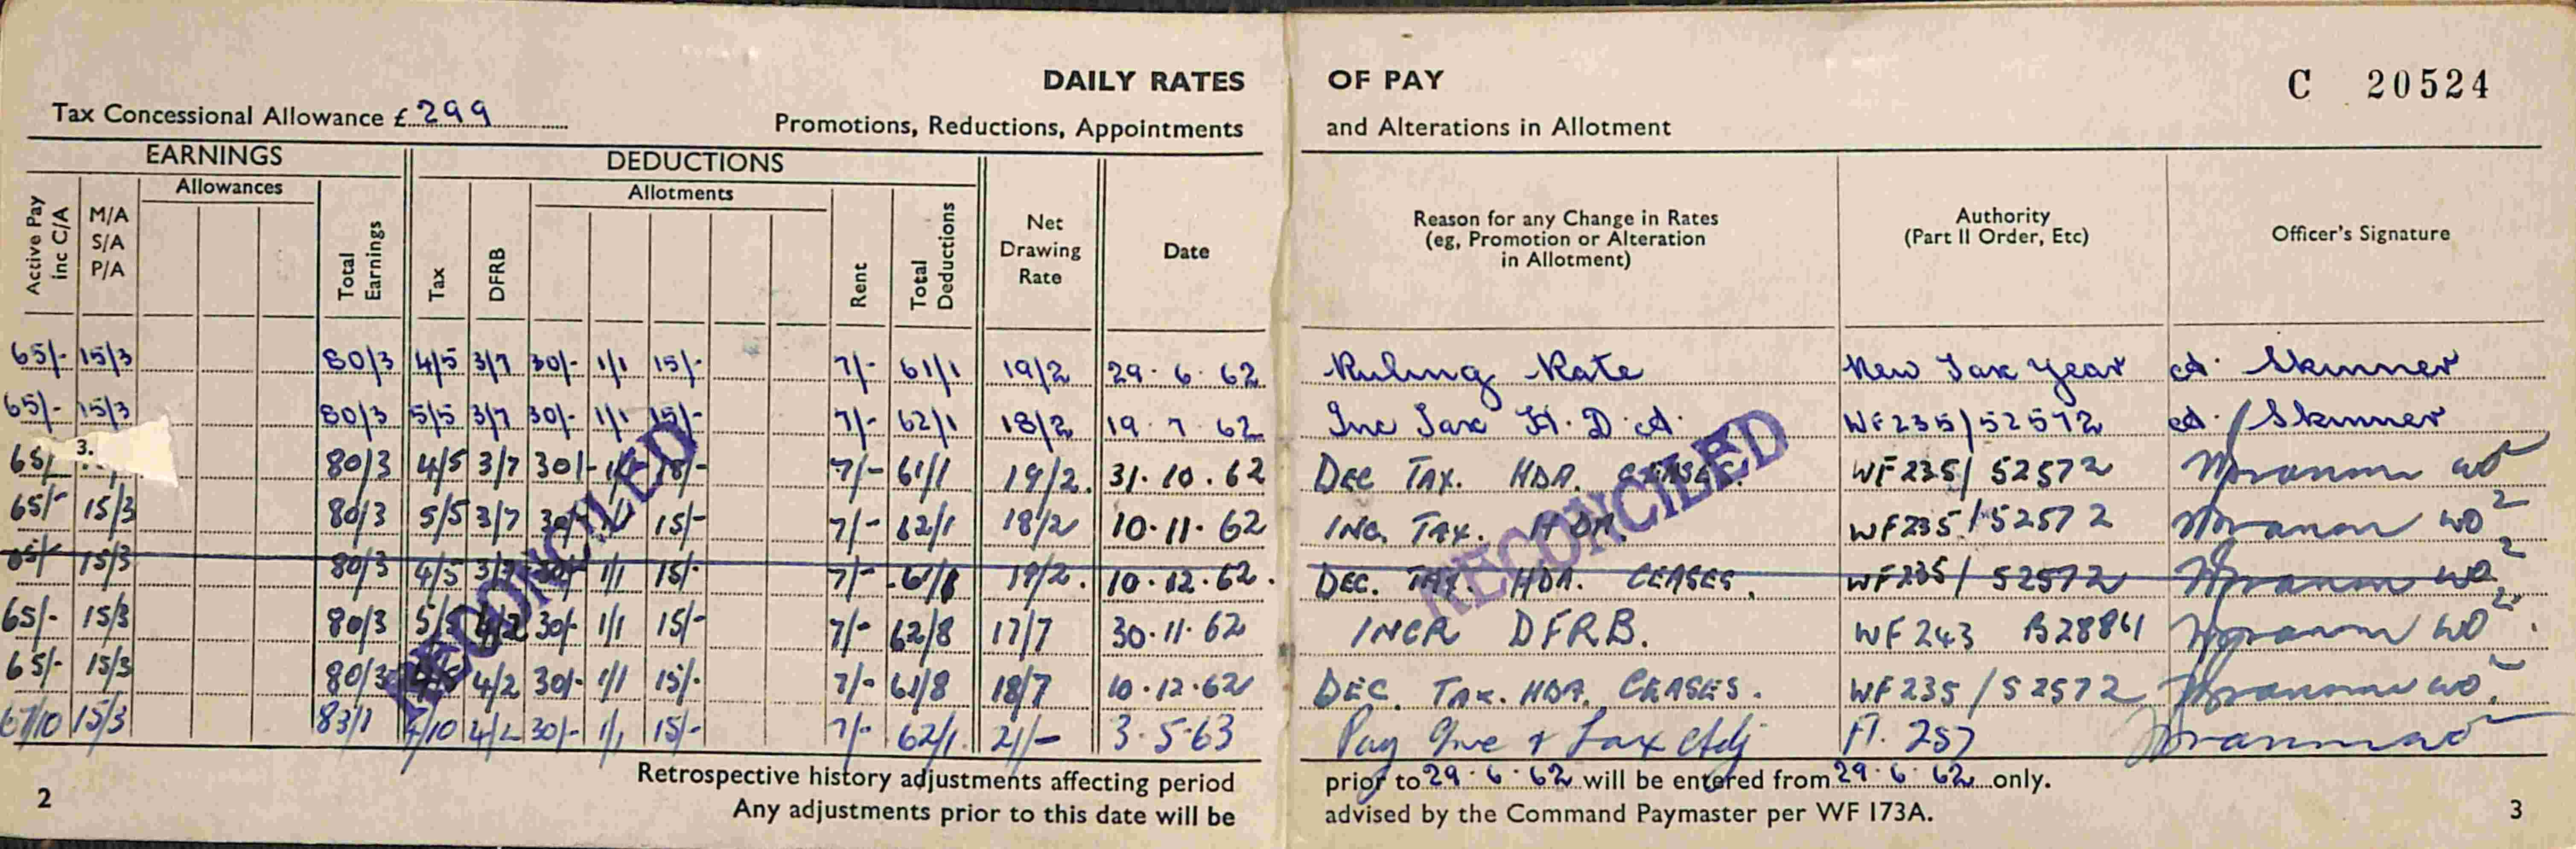 DAILY RATES OF PAY
C 20524
Tax Concessional Allowance £ 299
Promotions, Reductions, Appointments and Alterations in Allotment
EARNINGS DEDUCTIONS
Allowances Allotments
Active Pay inc C/A
M/A S/A P/A
Total Earnings
Tax
DFRB
Rent
Total Deductions
Net Drawing Rate
Date
Reason for any Change in Rates
(eg, Promotion or Alteration
in Allotment)
Authority
(Part II Order, Etc)
Officer's Signature
65/- 15/3 80/3 4/5 3/7 30/- 1/1 15/- 7/- 61/1 19/2 29.6.62 Ruling Rate New Tax Year A. Skinner
65/- 15/3 80/3 5/5 3/7 30/- 1/1 15/- 7/- 62/1 18/2 19.7.62 Inc Tax H.D.A. WF235/52572 A. Skinner
65/ 3. 80/3 4/5 3/7 30/- 7/- 61/1 19/2. 31.10.62 DEC TAX. HDA. CEASES. WF235/52572 WO
65/- 15/3 80/3 5/5 3/7 30/- 1/1 15/- 7/- 62/1 18/2 10.11.62 INC. TAX. HDA. WF235/52572 WO2
65/ 15/3 80/3 4/5 3/7 30/- 1/1 15/- 7/- 61/1 19/2. 10.12.62. DEC. TAX. HDA. CEASES. WF235/52572 WO2
65/- 15/3 80/3 5/5 4/2 30/- 1/1 15/- 7/- 62/8 17/7 30.11.62 INCR DFRB. WF243 B28861 WO2.
65/- 15/3 80/3 4/2 30/- 1/1 15/- 7/- 61/8 18/7 10.12.62 DEC. TAX. HDA. CEASES. WF235/52572 WO2
67/10 15/3 83/1 4/10 4/2 30/- 1/1 15/- 7/- 62/1 21/- 3.5.63 Pay Inc & Tax Adj Fl. 257
RECONCILED
RECONCILED
Retrospective history adjustments affecting period prior to 29.6.62 will be entered from 29.6.62 only.
Any adjustments prior to this date will be advised by the Command Paymaster per WF 173A.
2
3